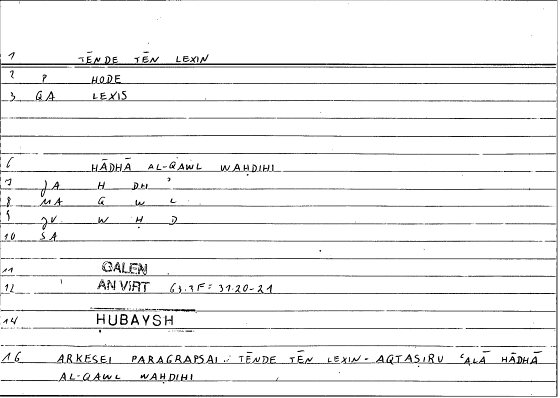 1 TĒNDE TĒN LEXIN
2 P HODE
3 GA LEXIS
6 HĀDHĀ AL-QAWL WAḤDIHI
7 JA H DH ʾ
8 MA Q W L
9 JV W Ḥ D
10 SA
11 GALEN
12 AN VIRT 63.7F = 31.20-21
14 HUBAYSH
16 ARKESEI PARAGRAPSAI .. TĒNDE TĒN LEXIN - AQTAṢIRU ʿALĀ HĀDHĀ
AL-QAWL WAḤDIHI